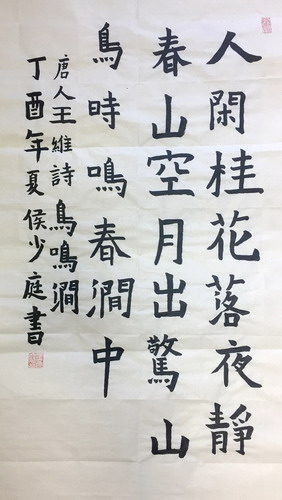 人閑桂花落夜靜
春山空月出驚山
鳥時鳴春澗中
唐人王維詩 鳥鳴澗
丁酉年夏侯少庭書